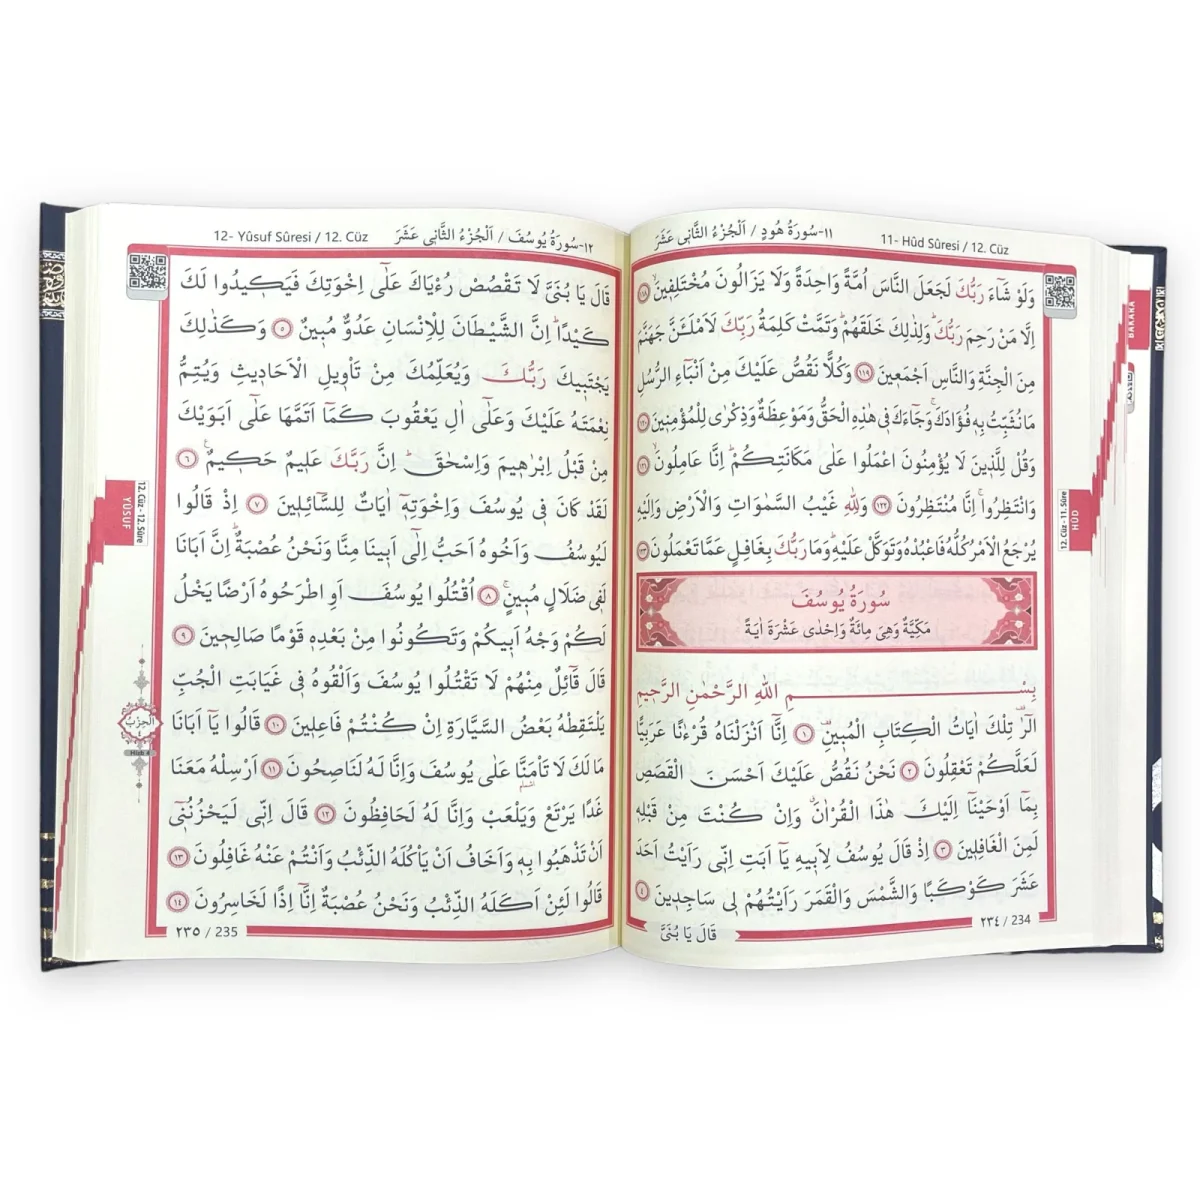 11- Hûd Sûresi / 12. Cüz
١١-سُورَةُ هُودٍ / اَلْجُزْءُ الثَّانِي عَشَرَ
وَلَوْ شَٓاءَ رَبُّكَ لَجَعَلَ النَّاسَ اُمَّةً وَاحِدَةً وَلَا يَزَالُونَ مُخْتَلِفٖينَۙ ١١٨
اِلَّا مَنْ رَحِمَ رَبُّكَۜ وَلِذٰلِكَ خَلَقَهُمْۜ وَتَمَّتْ كَلِمَةُ رَبِّكَ لَاَمْلَـَٔنَّ جَهَنَّمَ
مِنَ الْجِنَّةِ وَالنَّاسِ اَجْمَعٖينَ ١١٩ وَكُلًّا نَقُصُّ عَلَيْكَ مِنْ اَنْبَٓاءِ الرُّسُلِ
مَا نُثَبِّتُ بِهٖ فُؤٰادَكَۚ وَجَٓاءَكَ فٖي هٰذِهِ الْحَقُّ وَمَوْعِظَةٌ وَذِكْرٰى لِلْمُؤْمِنٖينَ ١٢٠
وَقُلْ لِلَّذٖينَ لَا يُؤْمِنُونَ اعْمَلُوا عَلٰى مَكَانَتِكُمْۜ اِنَّا عَامِلُونَۙ ١٢١
وَانْتَظِرُواۚ اِنَّا مُنْتَظِرُونَ ١٢٢ وَلِلّٰهِ غَيْبُ السَّمٰوَاتِ وَالْاَرْضِ وَاِلَيْهِ
يُرْجَعُ الْاَمْرُ كُلُّهُ فَاعْبُدْهُ وَتَوَكَّلْ عَلَيْهِۜ وَمَا رَبُّكَ بِغَافِلٍ عَمَّا تَعْمَلُونَ ١٢٣
سُورَةُ يُوسُفَ
مَكِّيَّةٌ وَهِيَ مِائَةٌ وَاِحْدٰى عَشْرَةَ اٰيَةً
بِسْمِ اللّٰهِ الرَّحْمٰنِ الرَّحٖيمِ
الٓرٰ۠ تِلْكَ اٰيَاتُ الْكِتَابِ الْمُبٖينِ۠ ١ اِنَّٓا اَنْزَلْنَاهُ قُرْءٰنًا عَرَبِيًّا
لَعَلَّكُمْ تَعْقِلُونَ ٢ نَحْنُ نَقُصُّ عَلَيْكَ اَحْسَنَ الْقَصَصِ
بِمَٓا اَوْحَيْنَٓا اِلَيْكَ هٰذَا الْقُرْاٰنَۗ وَاِنْ كُنْتَ مِنْ قَبْلِهٖ
لَمِنَ الْغَافِلٖينَ ٣ اِذْ قَالَ يُوسُفُ لِاَبٖيهِ يَٓا اَبَتِ اِنّٖي رَاَيْتُ اَحَدَ
عَشَرَ كَوْكَبًا وَالشَّمْسَ وَالْقَمَرَ رَاَيْتُهُمْ لٖي سَاجِدٖينَ ٤
قَالَ يَا بُنَيَّ
٢٣٤ / 234
BAKARA
12. Cüz - 11. Sûre
HÛD
12- Yûsuf Sûresi / 12. Cüz
١٢-سُورَةُ يُوسُفَ / اَلْجُزْءُ الثَّانِي عَشَرَ
قَالَ يَا بُنَيَّ لَا تَقْصُصْ رُءْيَاكَ عَلٰٓى اِخْوَتِكَ فَيَكٖيدُوا لَكَ
كَيْدًاۜ اِنَّ الشَّيْطَانَ لِلْاِنْسَانِ عَدُوٌّ مُبٖينٌ ٥ وَكَذٰلِكَ
يَجْتَبٖيكَ رَبُّكَ وَيُعَلِّمُكَ مِنْ تَأْوٖيلِ الْاَحَادٖيثِ وَيُتِمُّ
نِعْمَتَهُ عَلَيْكَ وَعَلٰٓى اٰلِ يَعْقُوبَ كَمَٓا اَتَمَّهَا عَلٰٓى اَبَوَيْكَ
مِنْ قَبْلُ اِبْرٰهٖيمَ وَاِسْحٰقَۜ اِنَّ رَبَّكَ عَلٖيمٌ حَكٖيمٌ۟ ٦
لَقَدْ كَانَ فٖي يُوسُفَ وَاِخْوَتِهٖٓ اٰيَاتٌ لِلسَّٓائِلٖينَ ٧ اِذْ قَالُوا
لَيُوسُفُ وَاَخُوهُ اَحَبُّ اِلٰٓى اَبٖينَا مِنَّا وَنَحْنُ عُصْبَةٌۜ اِنَّ اَبَانَا
لَفٖي ضَلَالٍ مُبٖينٍۚ ٨ اُقْتُلُوا يُوسُفَ اَوِ اطْرَحُوهُ اَرْضًا يَخْلُ
لَكُمْ وَجْهُ اَبٖيكُمْ وَتَكُونُوا مِنْ بَعْدِهٖ قَوْمًا صَالِحٖينَ ٩
قَالَ قَٓائِلٌ مِنْهُمْ لَا تَقْتُلُوا يُوسُفَ وَاَلْقُوهُ فٖي غَيَابَتِ الْجُبِّ
يَلْتَقِطْهُ بَعْضُ السَّيَّارَةِ اِنْ كُنْتُمْ فَاعِلٖينَ ١٠ قَالُوا يَٓا اَبَانَا
مَا لَكَ لَا تَأْمَنَّا عَلٰى يُوسُفَ وَاِنَّا لَهُ لَنَاصِحُونَ ١١ اَرْسِلْهُ مَعَنَا
غَدًا يَرْتَعْ وَيَلْعَبْ وَاِنَّا لَهُ لَحَافِظُونَ ١٢ قَالَ اِنّٖي لَيَحْزُنُنٖٓي
اَنْ تَذْهَبُوا بِهٖ وَاَخَافُ اَنْ يَأْكُلَهُ الذِّئْبُ وَاَنْتُمْ عَنْهُ غَافِلُونَ ١٣
قَالُوا لَئِنْ اَكَلَهُ الذِّئْبُ وَنَحْنُ عُصْبَةٌ اِنَّٓا اِذًا لَخَاسِرُونَ ١٤
٢٣٥ / 235
12. Cüz - 12. Sûre
YÛSUF
اَلْحِزْبُ
Hizb 4